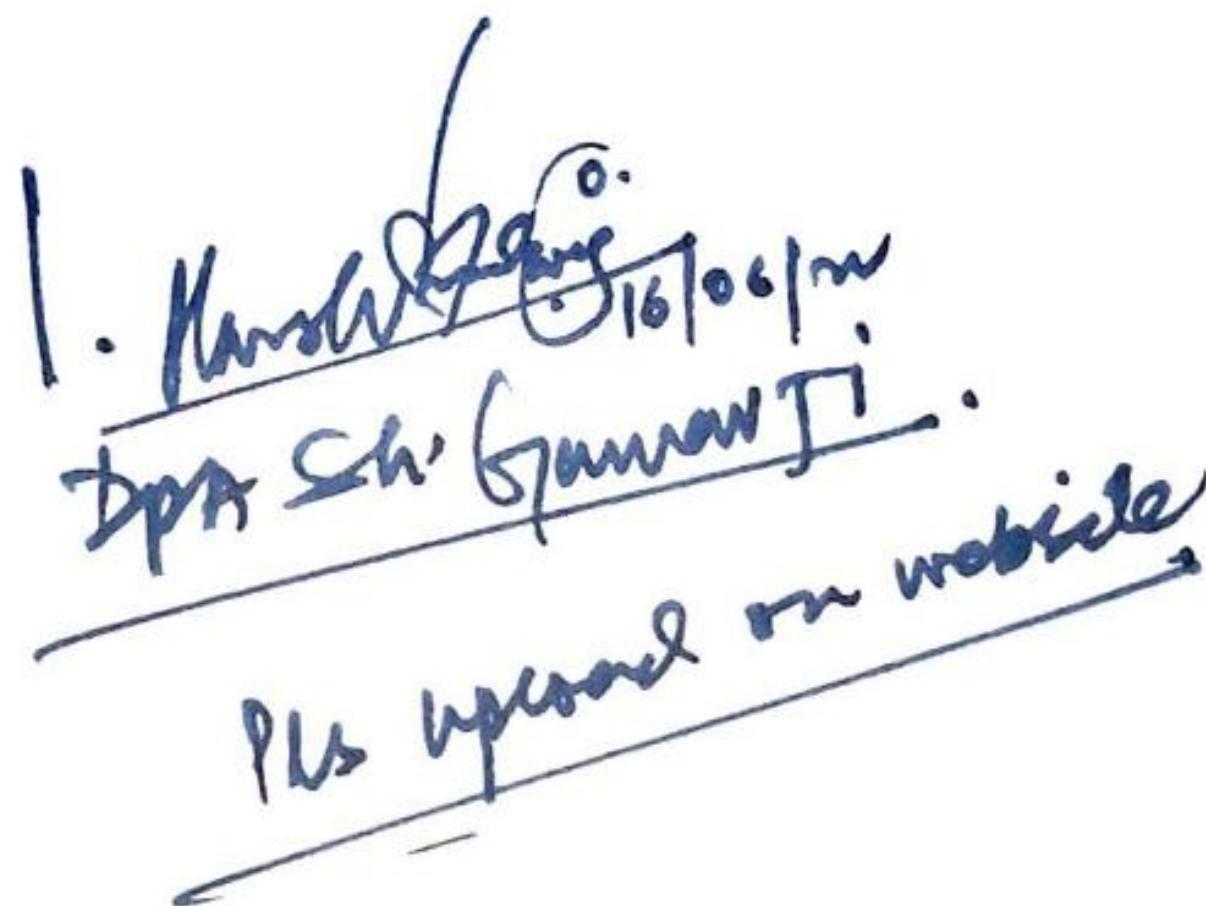 1. Harsh 16/06/22
DPA Sh. Gaurav Ji.
Pls upload on website